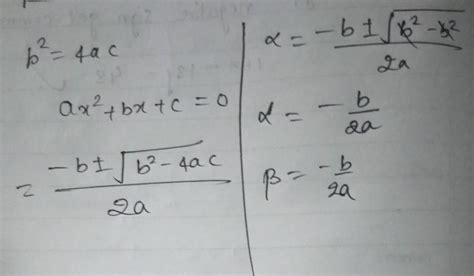 b² = 4ac
ax² + bx + c = 0
= -b ± √b² - 4ac / 2a
α = -b ± √b² - b² / 2a
α = - b / 2a
β = -b / 2a